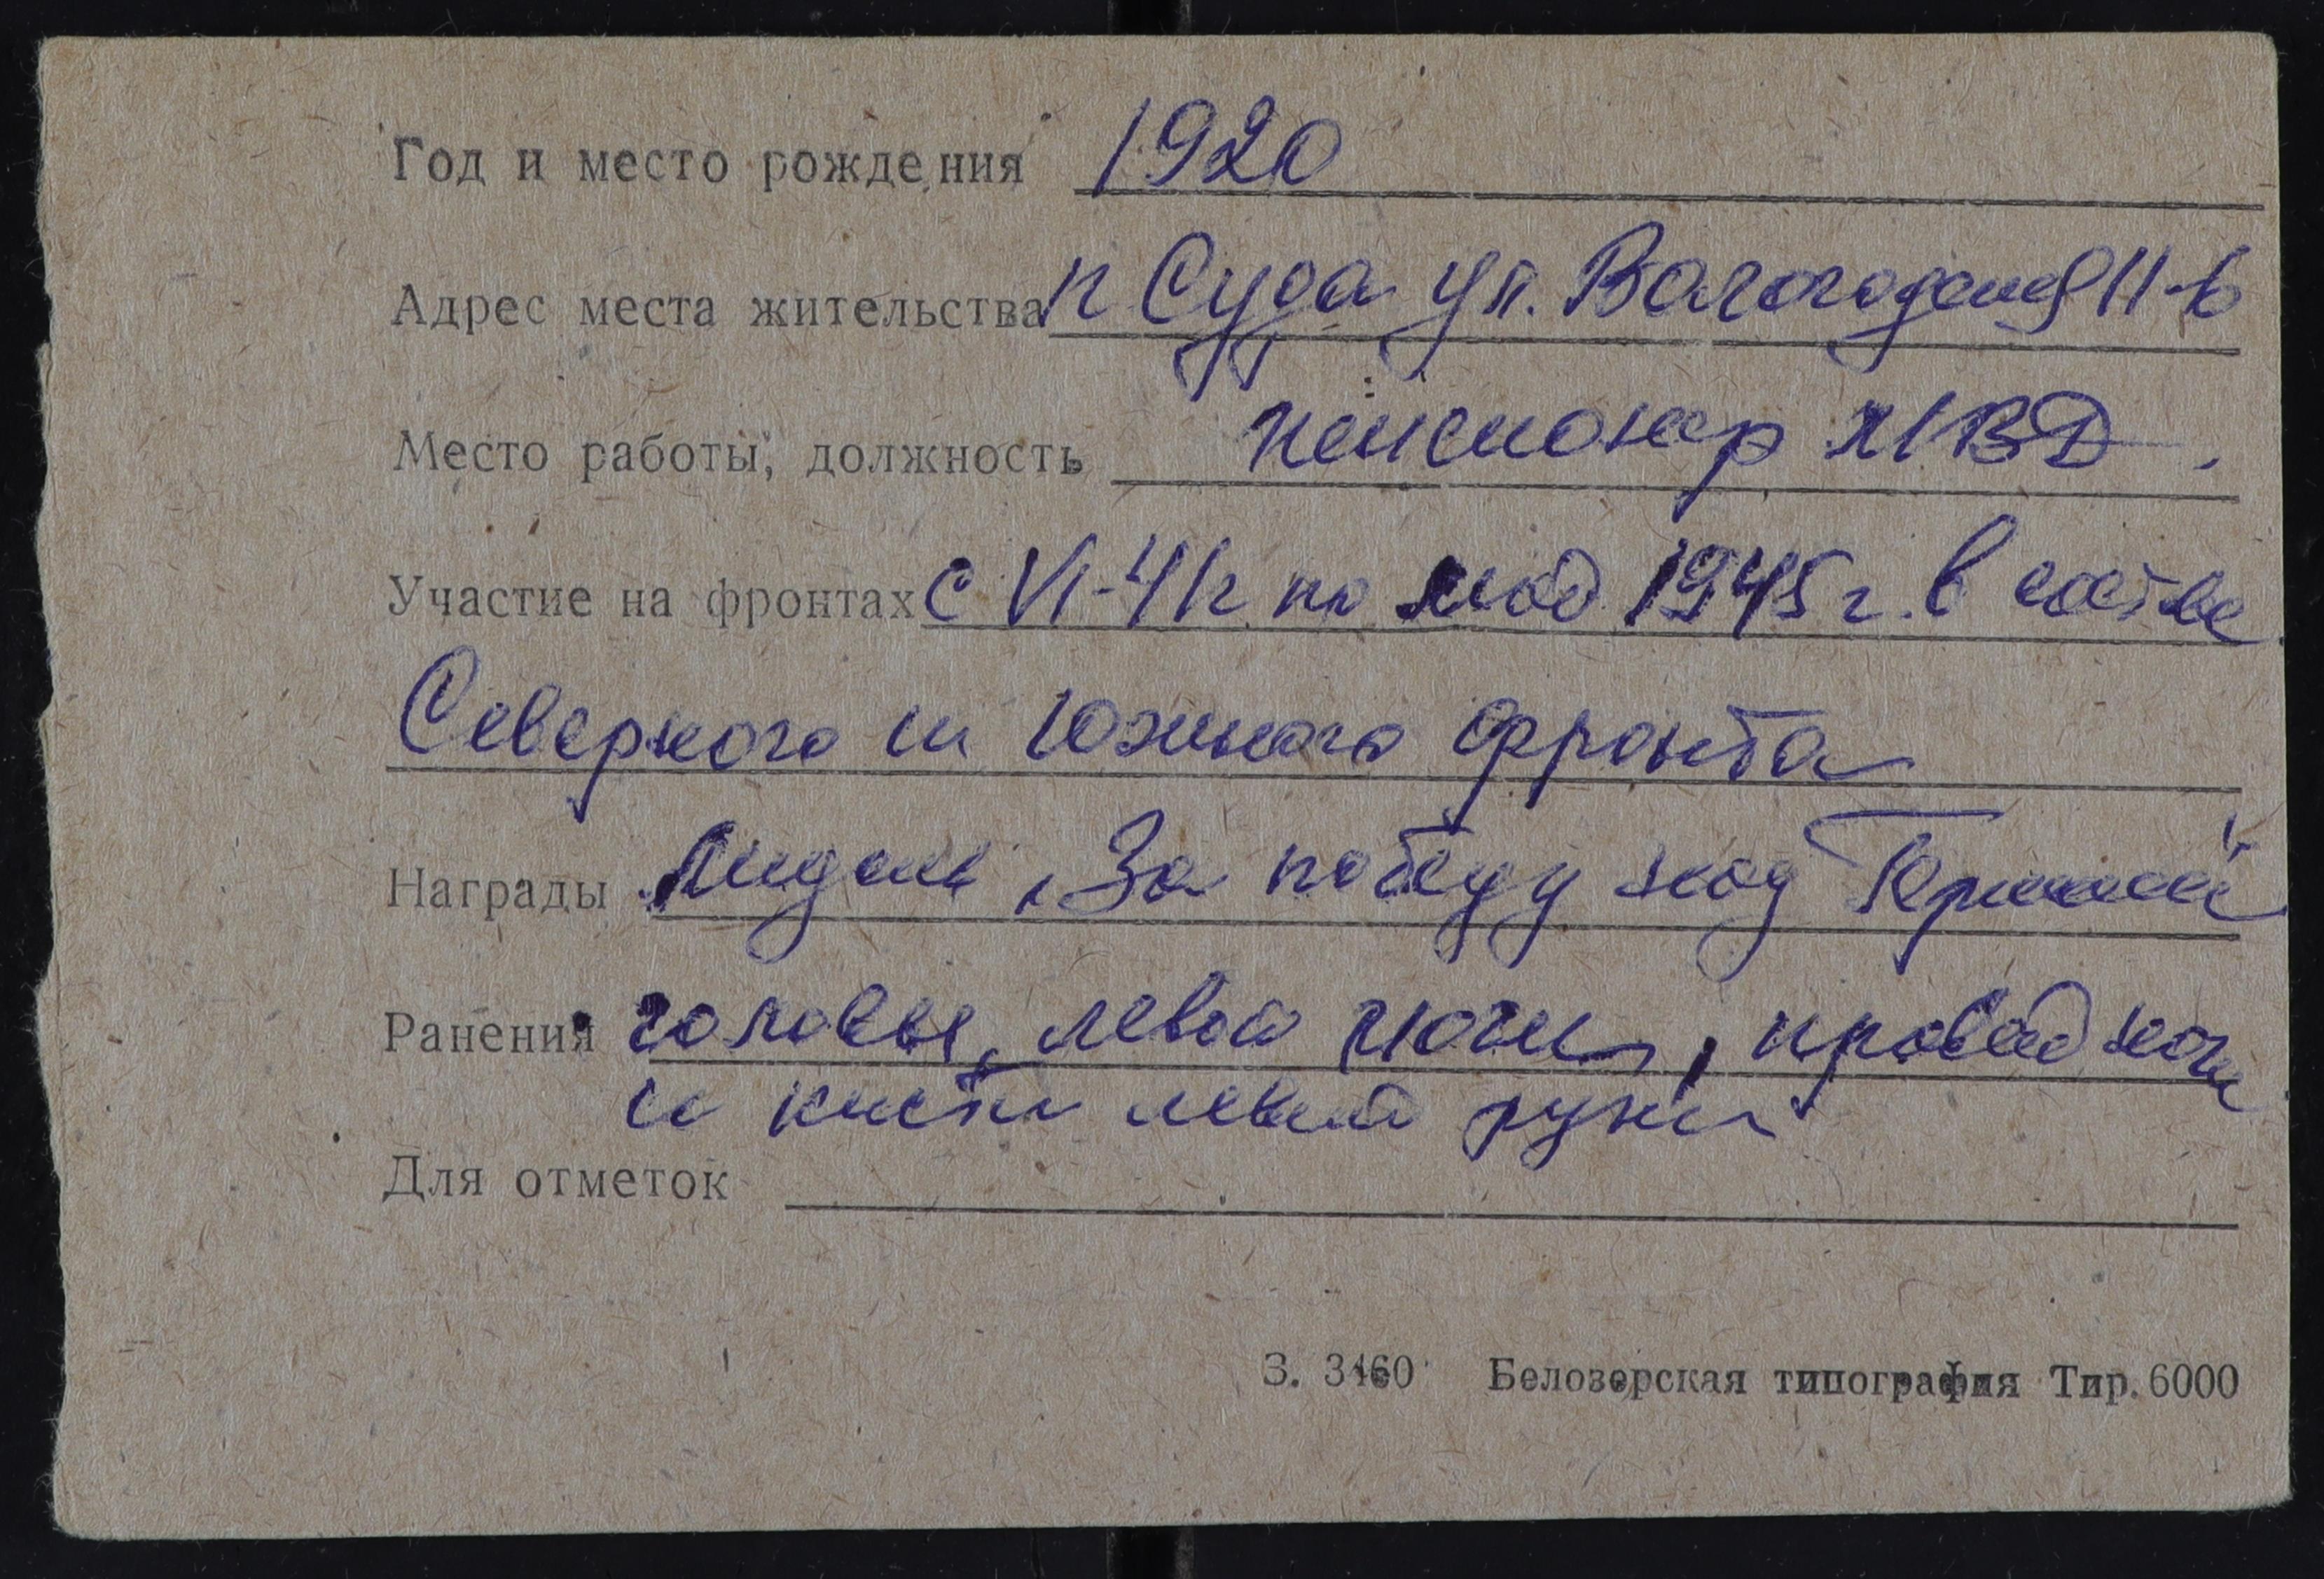 Год и место рождения 1920
Адрес места жительства п Суда ул. Вологодская 11-6
Место работы, должность пенсионер МВД.
Участие на фронтах с VI-41г по май 1945 г. в составе
Северного и Южного фронта
Награды Медаль „За победу над Германией"
Ранения головы, левой ноги, правой ноги
и кисти левой руки
Для отметок
З. 3460 Белозерская типография Тир. 6000